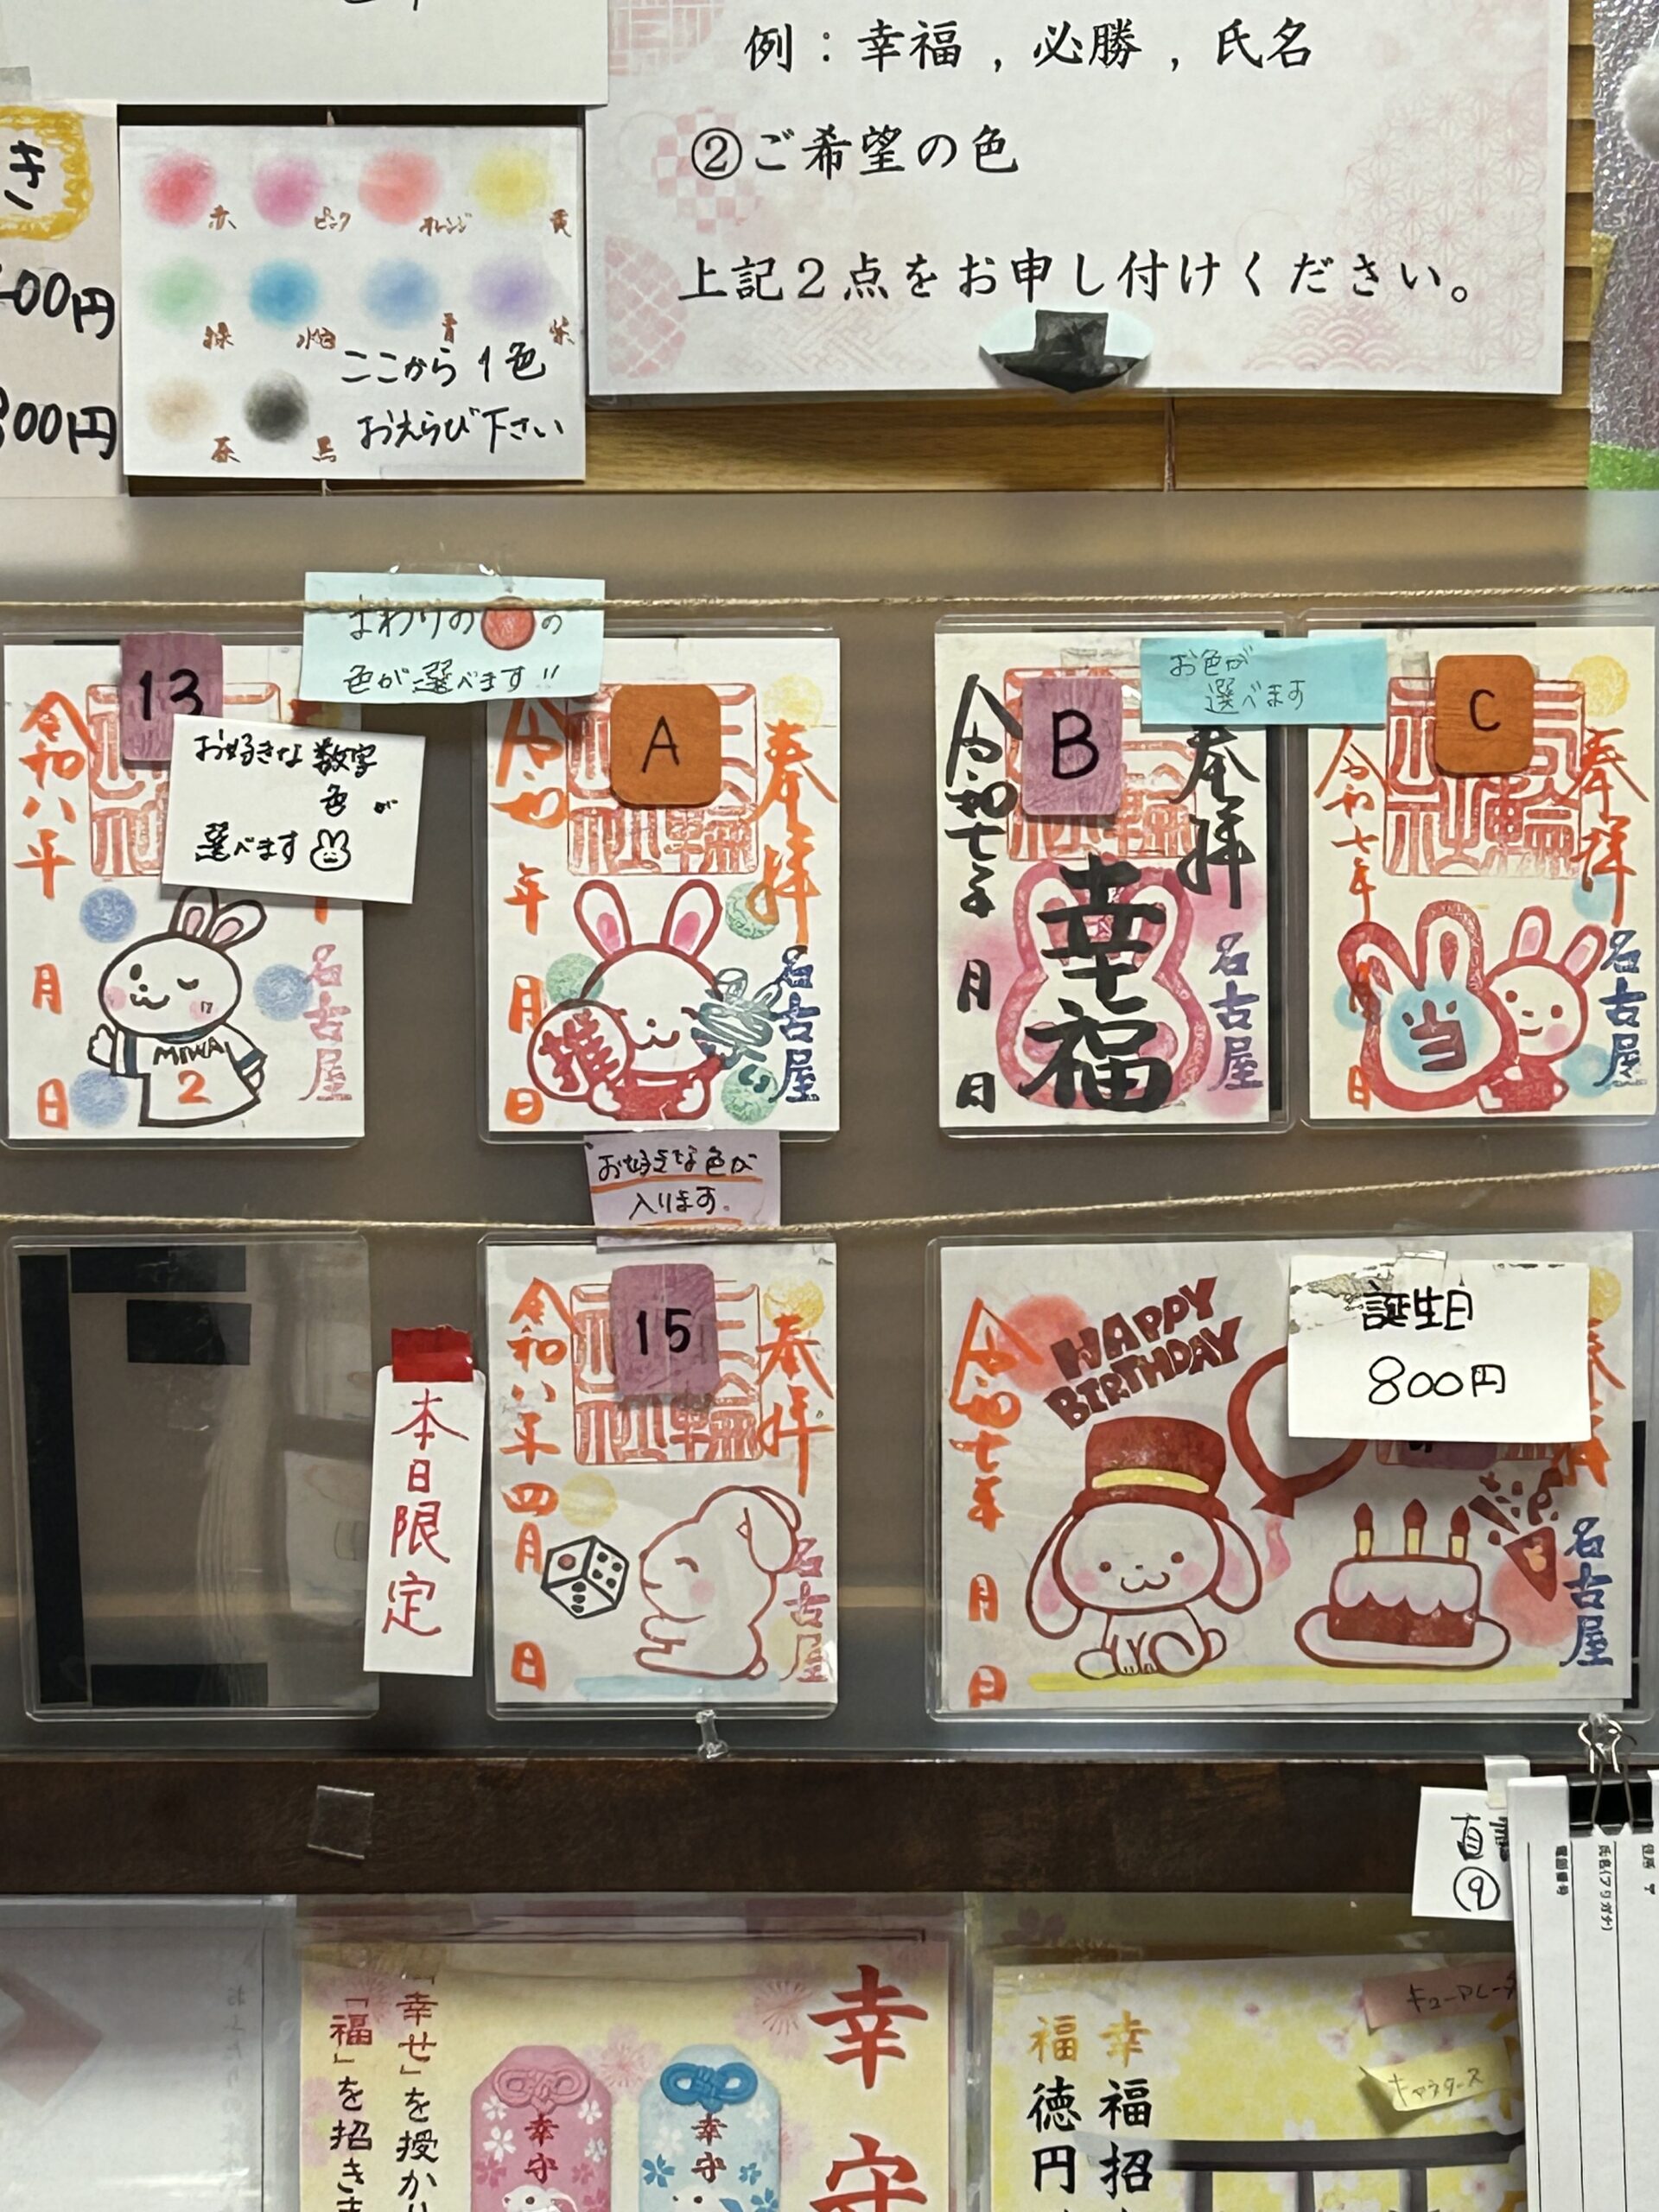 例：幸福，必勝，氏名
②ご希望の色
上記２点をお申し付けください。
き
00円
800円
赤
ピンク
オレンジ
黄
緑
水色
青
紫
茶
黒
ここから1色
おえらび下さい
まわりの
の
色が選べます!!
13
お好きな数字
色が
選べます
令和八年
月
日
名古屋
MIWA
2
A
奉拝
令和
年
月
日
名古屋
推
お色が
選べます
B
奉拝
令和七年
月
日
名古屋
幸福
C
奉拝
令和七年
月
日
名古屋
当
お好きな色が
入ります。
本日限定
15
奉拝
令和八年四月
日
名古屋
HAPPY
BIRTHDAY
誕生日
800円
令和七年
月
日
名古屋
⑨
住所 〒
氏名(フリガナ)
電話番号
幸守
「幸せ」を授か
「福」を招き
幸守
幸守
幸福招
福徳円
キャラクターズ